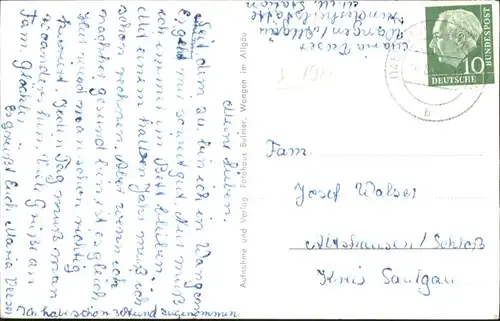 Meine Lieben.
Seit dem 20. bin ich in Wangen
Es geht mir soweit gut. Nur muß
ich immer im Bett bleiben.
Mit einem halben Jahr muß ich
schon rechnen. Aber wenn ich
nachher gesund bin ist es gleich.
Hier wird man schon richtig
kuriert. Jeden Tag muß man
Viele Grüße an
Fam.
Es grüßt Euch Maria
Ich habe schon zugenommen
Aufnahme und Verlag Feldhaus Bulmer, Wangen im Allgäu
Maria
Wangen/Allgäu
Kinderheilstätte
Station
DEUTSCHE BUNDESPOST
10
Fam.
Josef Walser
Altshausen/Schloß
Kreis Saulgau